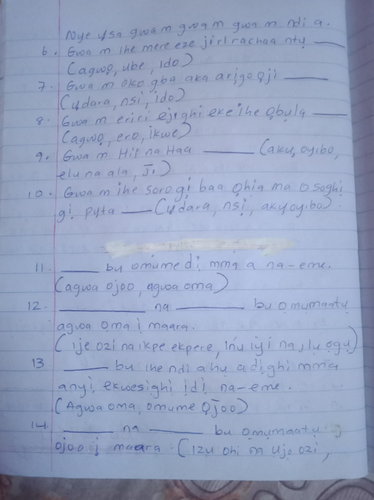 Nye ųsa gwa m gwam gwa m ndi a.
6. Gwa m ihe mere eze jiri rachaa ntụ ___
(agwọ, ube, ido)
7. Gwa m oko gba aka arịgo ọji ___
(ụdara, nsị, ido)
8. Gwa m erici ejighi eke ihe ọbụla ___
(agwọ, ero, ikwe)
9. Gwa m Hir na Haa ___ (akụ, oyibo,
elu na ala, ji)
10. Gwa m ihe soro gi baa ọhia ma o soghi
gi pụta ___ (ụdara, nsị, akụ oyibo)
11. ___ bu omume di mma a na-eme.
(agwa ojoo, agwa oma)
12. ___ na ___ bu omumaatụ
agwa oma i maara.
(ije ozi na ikpe ekpere, inu iyi na ịlụ ọgụ)
13 ___ bu ihe ndi ahu adighi mma
anyi ekwesighi idi na-eme.
(Agwa oma, omume ọjoo)
14. ___ na ___ bu omumaatụ
ojoo i maara (Izu ohi na ije ozi,